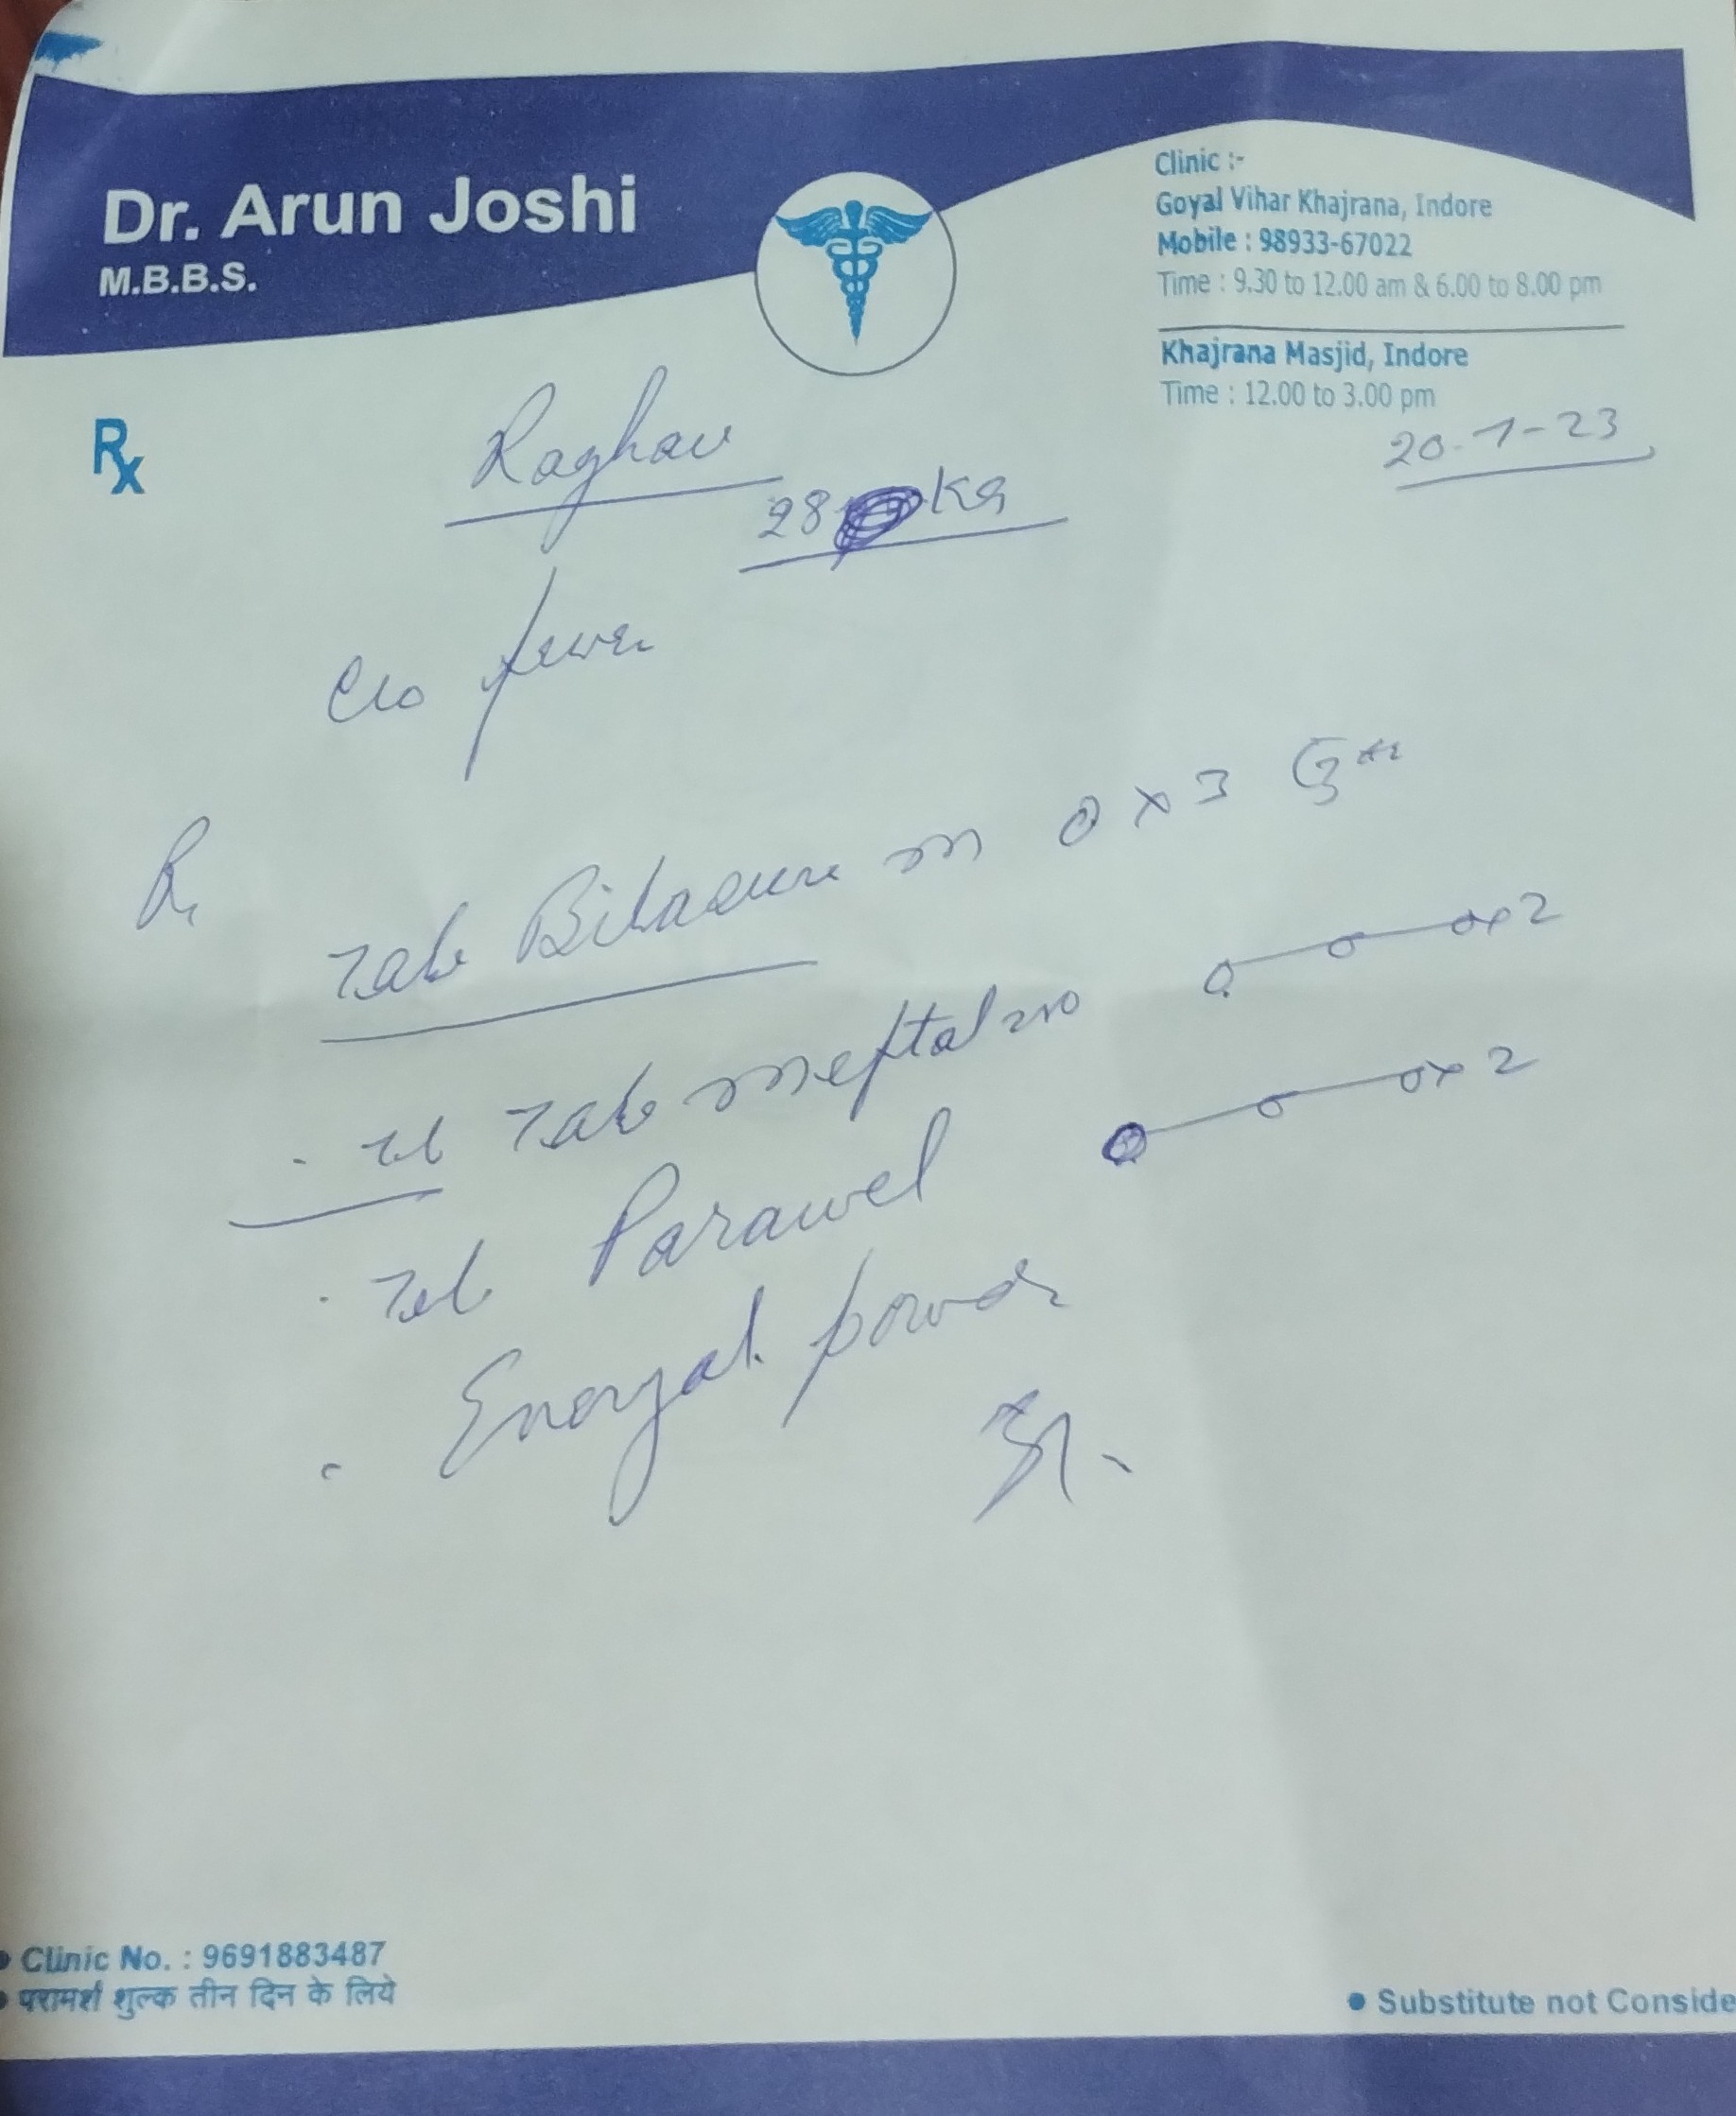 Dr. Arun Joshi
M.B.B.S.
Clinic :-
Goyal Vihar Khajrana, Indore
Mobile : 98933-67022
Time : 9.30 to 12.00 am & 6.00 to 8.00 pm
Khajrana Masjid, Indore
Time : 12.00 to 3.00 pm
20-1-23
Rx
Raghav
28 KG
C/o fever
Tab m x 3
Tab meftal x 2
Tab Parawel x 2
Energal powder
Clinic No. : 9691883487
परामर्श शुल्क तीन दिन के लिये
Substitute not Conside